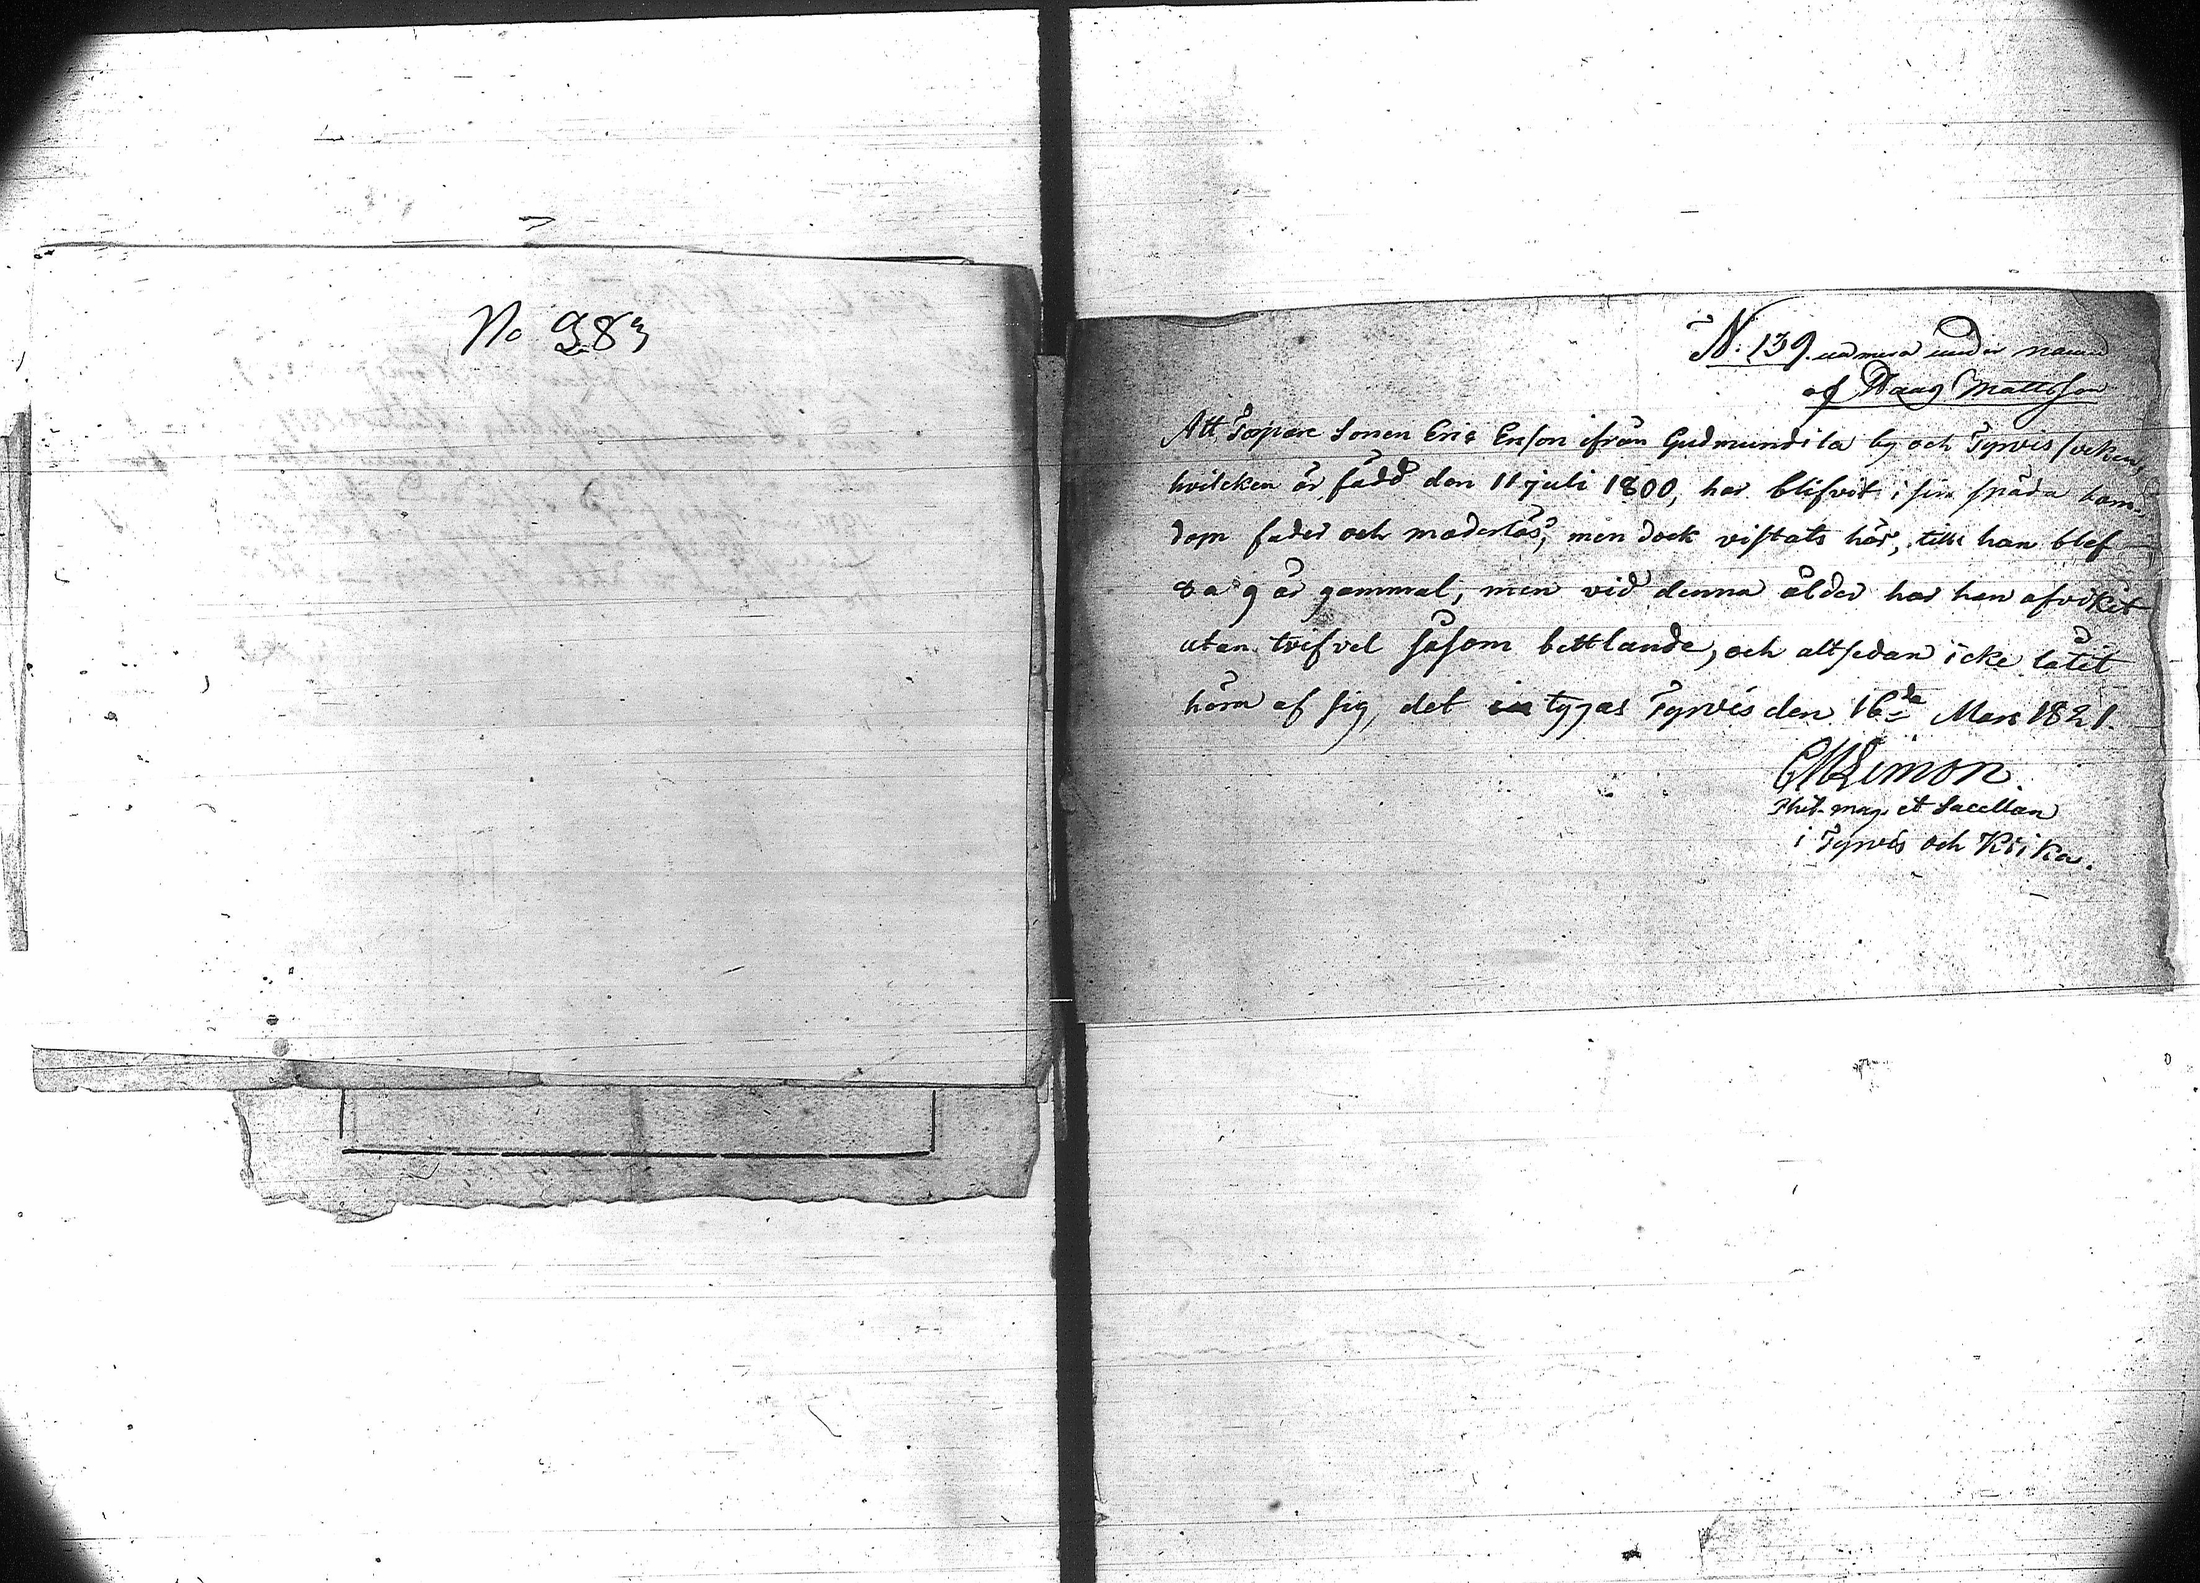 No 983
N: 139. nu mera under namn
af Haag Mattsson
Att Torpare Sonen Eric Ersson ifrån Gudmundila by och Tyrvis socken,
hvilcken är född den 11 juli 1800, har blifvit i sin späda barn-
dom fader och moderlös, men dock vistats här, tills han blef
8 a 9 år gammal, men vid denna ålder har han afvikit
utan tvifvel såsom bettlande, och altsedan icke låtit
höra af sig, det intygas Tyrvis den 16de Mars 1821.
Limon.
Phil. mag. et Sacellan
i Tyrvis och Kiika.